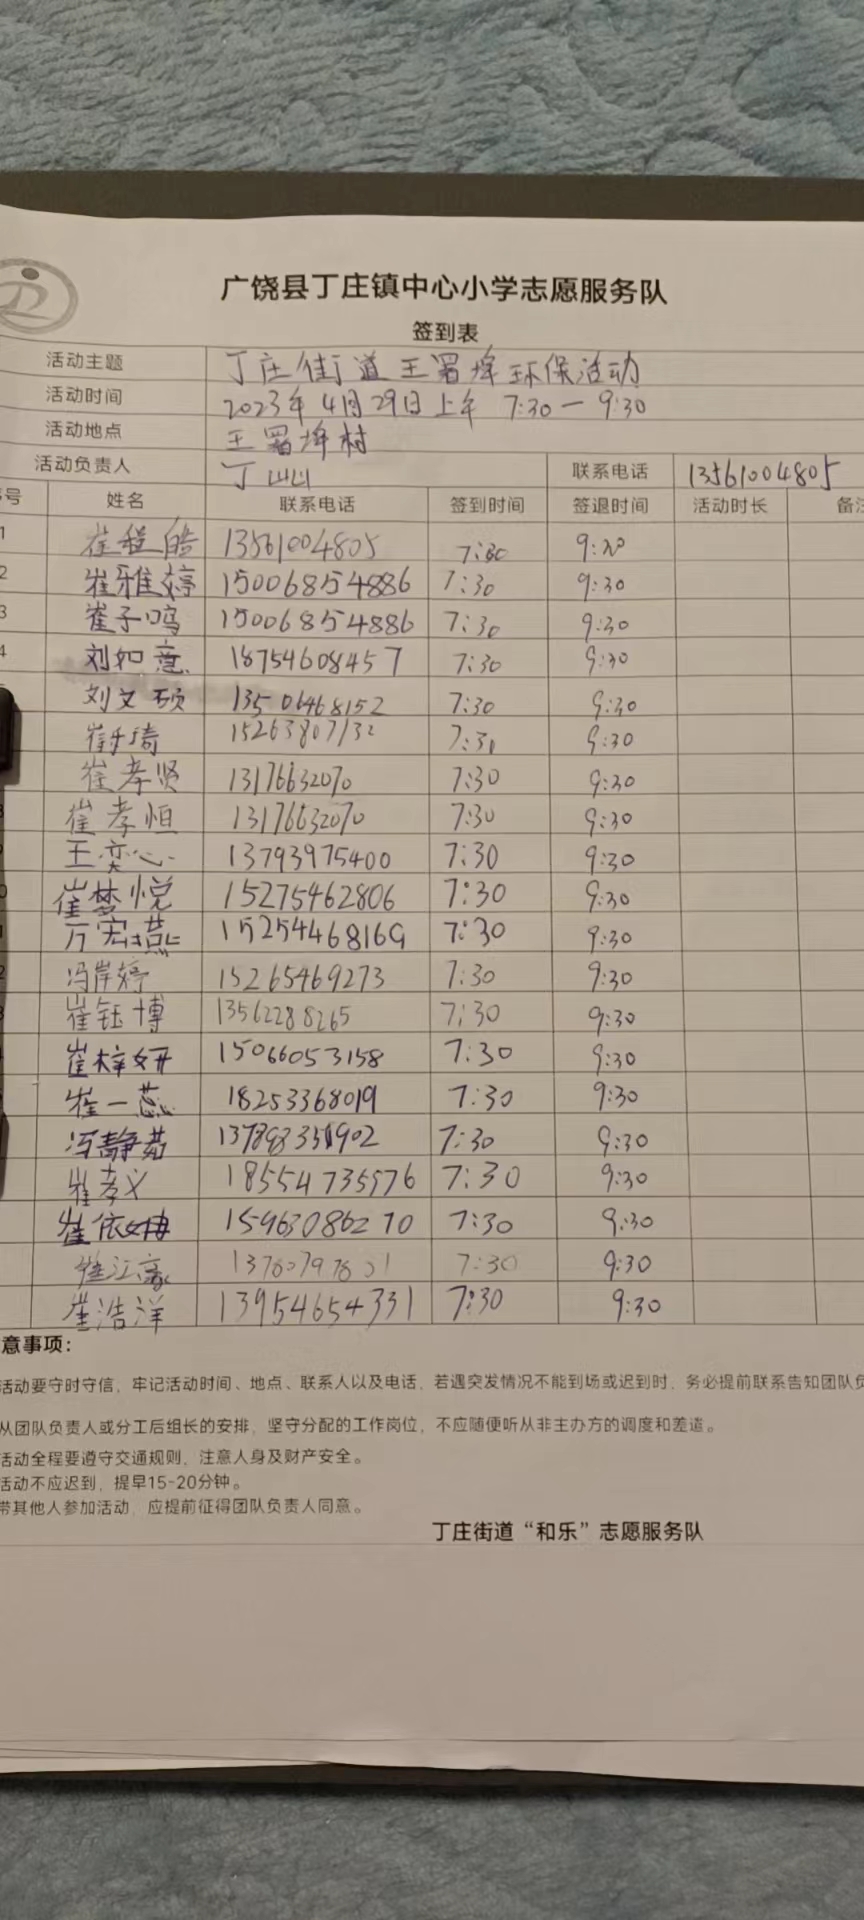 广饶县丁庄镇中心小学志愿服务队
签到表
活动主题 丁庄街道王署埠环保活动
活动时间 2023年4月29日上午 7:30—9:30
活动地点 王署埠村
活动负责人 丁山山 联系电话 13561004805
号 姓名 联系电话 签到时间 签退时间 活动时长 备注
1 崔程皓 13561004805 7:30 9:30
2 崔雅婷 15006854886 7:30 9:30
3 崔子鸣 15006854886 7:30 9:30
4 刘如意 18754608457 7:30 9:30
刘文硕 13506468152 7:30 9:30
崔 琦 15263807132 7:30 9:30
崔孝贤 13176632070 7:30 9:30
崔孝恒 13176632070 7:30 9:30
王奕心 13793975400 7:30 9:30
崔梦悦 15275462806 7:30 9:30
万宏燕 15254468169 7:30 9:30
冯岸婷 15265469273 7:30 9:30
崔钰博 13562288265 7:30 9:30
崔梓妍 15066053158 7:30 9:30
崔一蕊 18253368019 7:30 9:30
冯静茹 7:30 9:30
崔孝义 18554735976 7:30 9:30
崔依冉 15963086270 7:30 9:30
崔江豪 7:30 9:30
崔浩洋 13954654331 7:30 9:30
意事项：
活动要守时守信，牢记活动时间、地点、联系人以及电话，若遇突发情况不能到场或迟到时，务必提前联系告知团队负
从团队负责人或分工后组长的安排，坚守分配的工作岗位，不应随便听从非主办方的调度和差遣。
活动全程要遵守交通规则，注意人身及财产安全。
活动不应迟到，提早15-20分钟。
带其他人参加活动，应提前征得团队负责人同意。
丁庄街道“和乐”志愿服务队